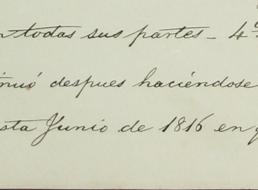 n todas sus partes - 4º
tinuó despues haciéndose
sta Junio de 1816 en q